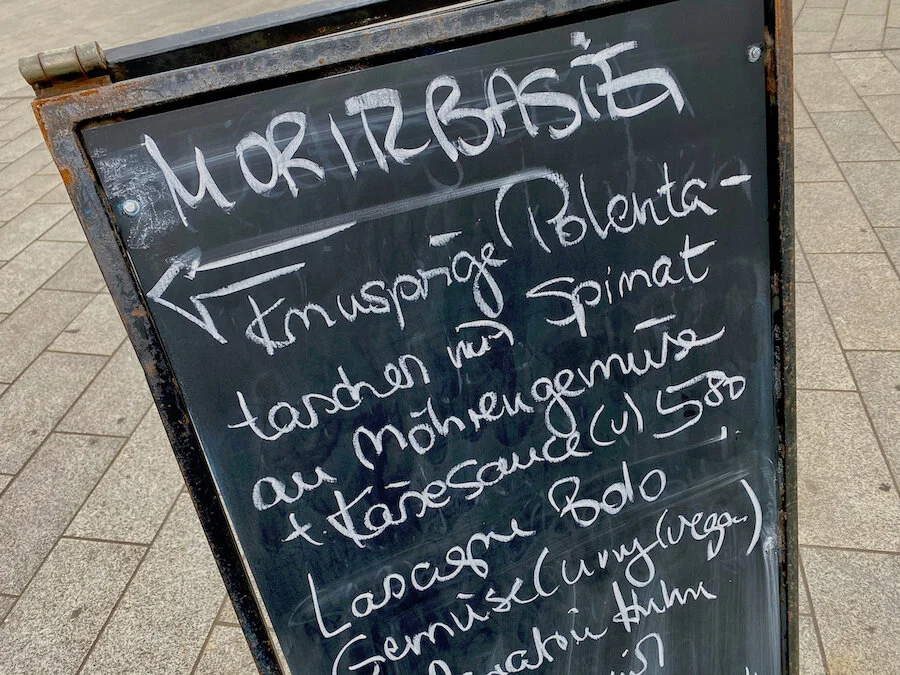 MORITZBASTEI
Knusprige Polenta-
taschen mit Spinat
an Möhrengemüse
+ Käsesauce (V) 580
Lasagne Bolo
Gemüsecurry (vegan)
Huhn